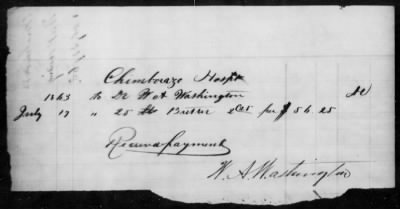 Chimborazo Hospt
1863 to Dr W A Washington Dr
July 17 " 25 lbs Butter 225 per $ 56 25
Received payment
W. A. Washington